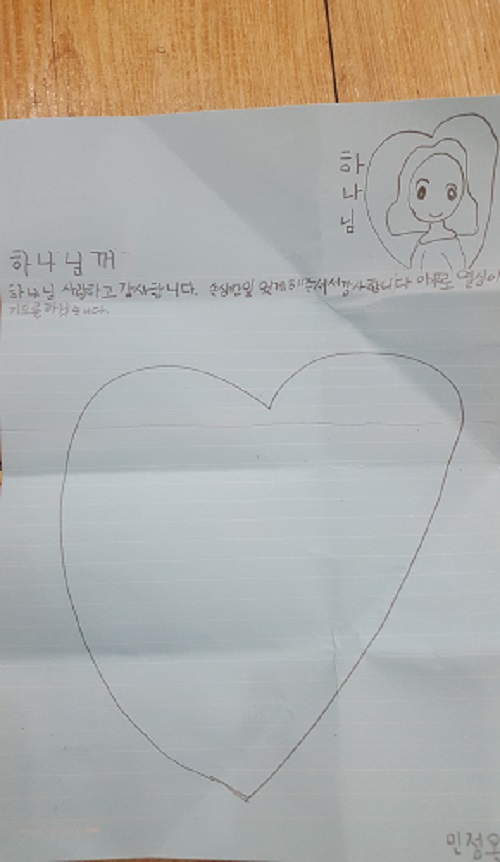 하
나
님
하나님께
하나님 사랑하고 감사합니다. 있게 해주셔서 감사합니다 앞으로 열심히
기도를 하겠습니다.
민정오